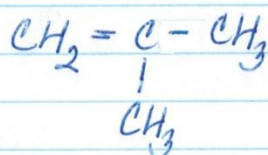 CH₂ = C - CH₃
|
CH₃